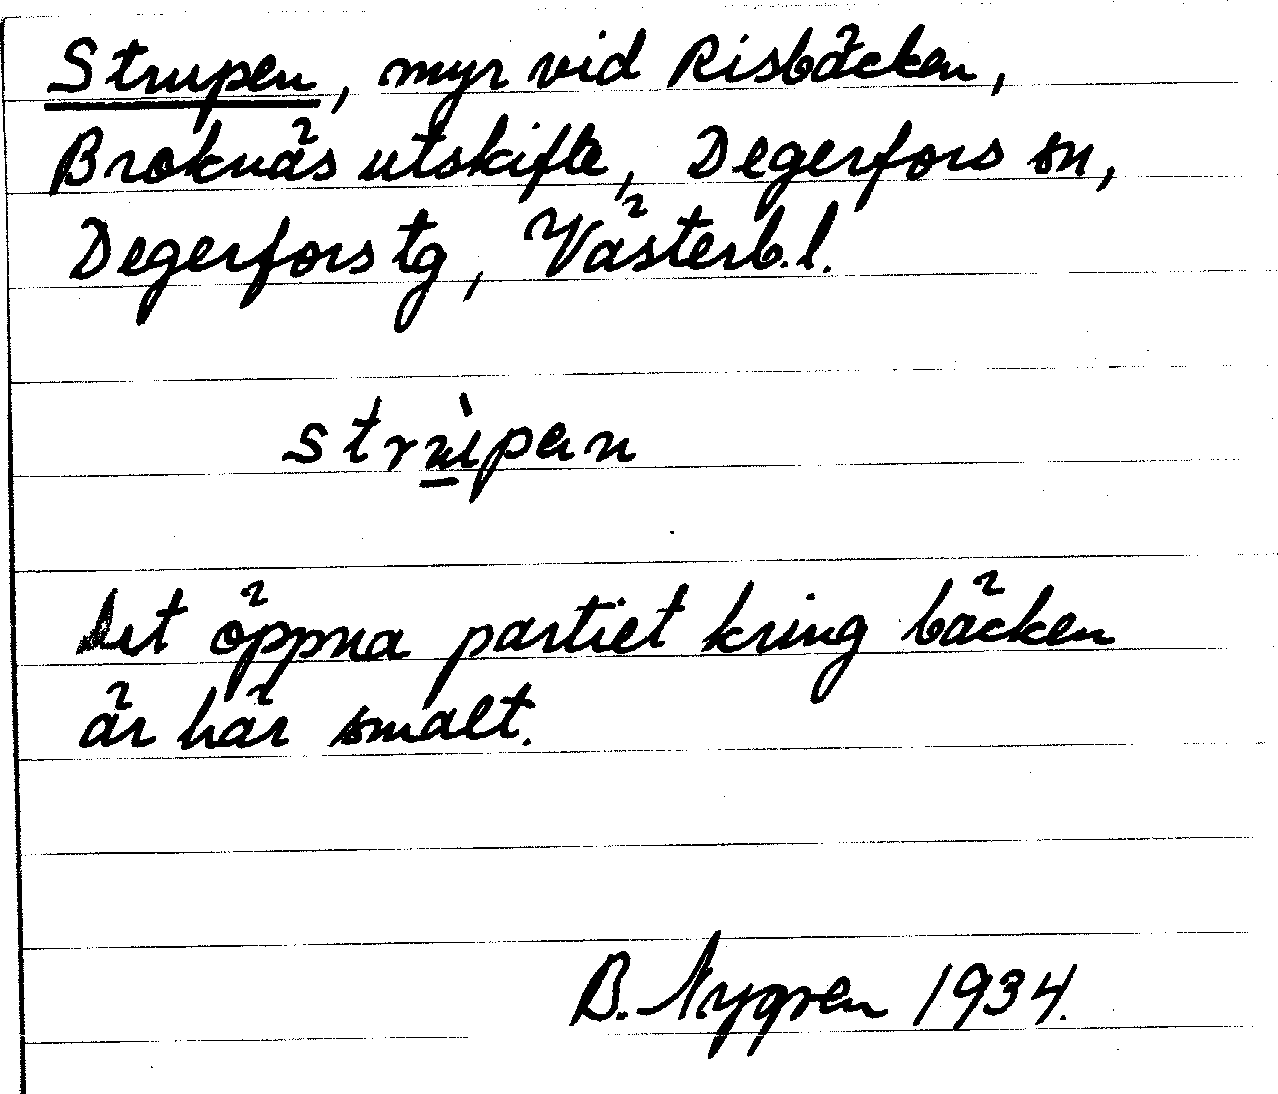 Strupen, myr vid Risbäcken,
Broknäs utskifte, Degerfors sn,
Degerfors tg, Västerb.l.
strùpen
Det öppna partiet kring bäcken
är här smalt.
B. Nygren 1934.